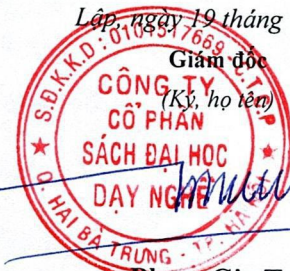 Lập, ngày 19 tháng
Giám đốc
(Ký, họ tên)
S.Đ.K.K.D: 0103517669 - C.T.C.P
CÔNG TY
CỔ PHẦN
SÁCH ĐẠI HỌC
DẠY NGHỀ
Q. HAI BÀ TRƯNG - TP. HÀ